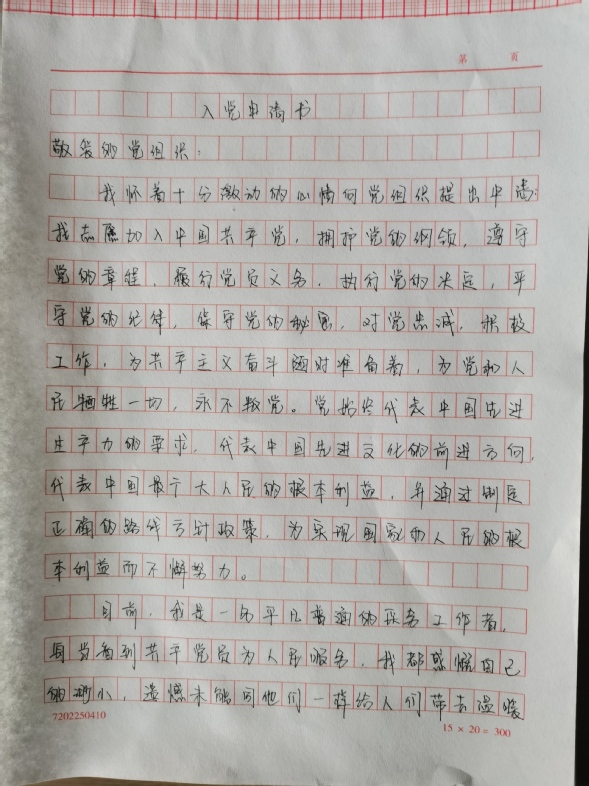 第 页
入党申请书
敬爱的党组织：
我怀着十分激动的心情向党组织提出申请：
我志愿加入中国共产党，拥护党的纲领，遵守
党的章程，履行党员义务，执行党的决定，严
守党的纪律，保守党的秘密，对党忠诚，积极
工作，为共产主义奋斗随时准备着，为党和人
民牺牲一切，永不叛党。党始终代表中国先进
生产力的要求，代表中国先进文化的前进方向，
代表中国最广大人民的根本利益，并通过制定
正确的路线方针政策，为实现国家和人民的根
本利益而不懈努力。
目前，我是一名平凡普通的医务工作者，
每当看到共产党员为人民服务，我都感慨自己
的渺小，遗憾未能同他们一样给人们带去温暖
7202250410
15 × 20 = 300